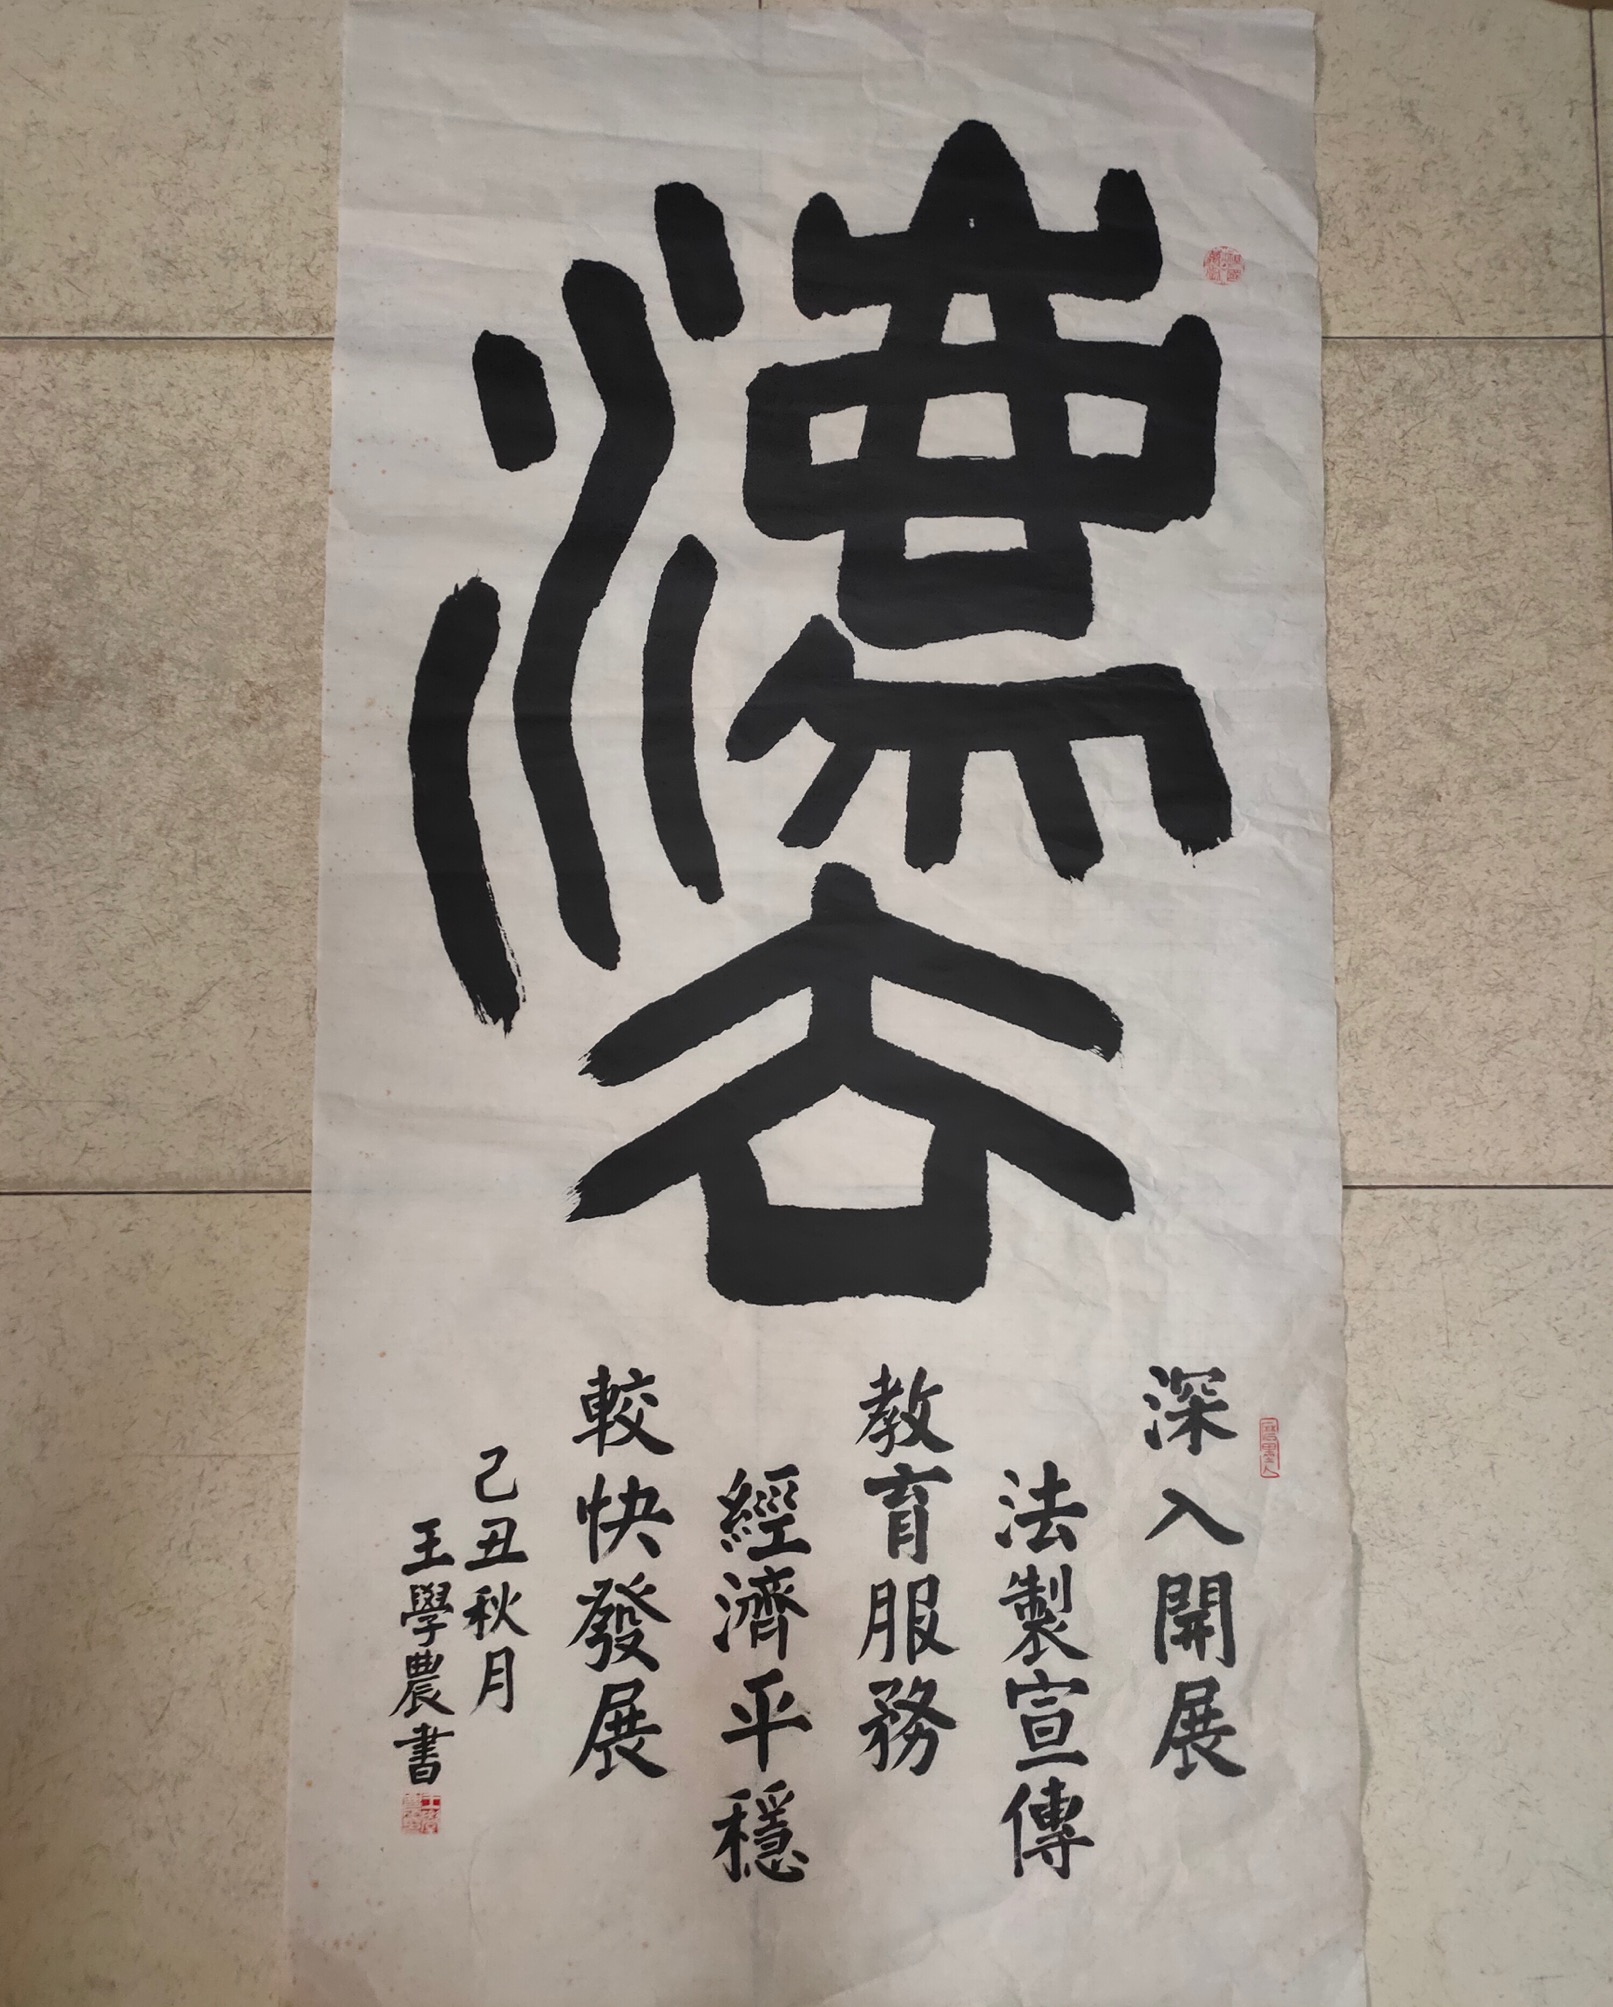 灋
深入開展
法製宣傳
教育服務
經濟平穩
較快發展
己丑秋月
王學農書